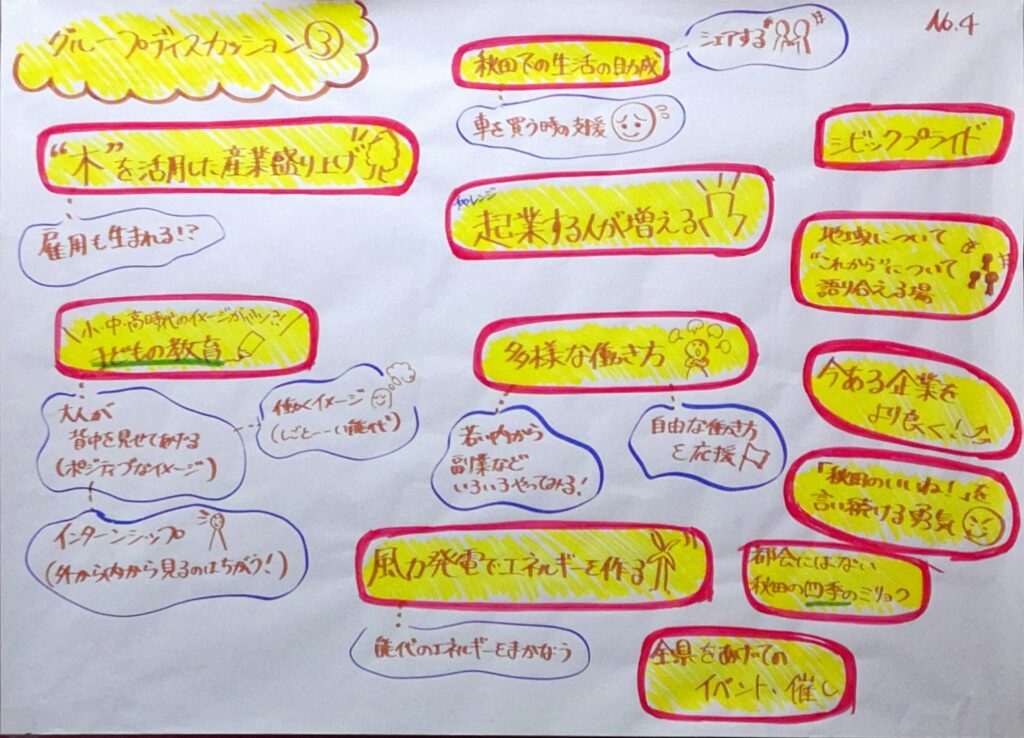 グループディスカッション③
No.4
"木"を活用した産業盛り上げ
雇用も生まれる!?
\小・中・高時代のイメージがパッ?!/
子どもの教育
大人が
背中を見せてあげる
(ポジティブなイメージ)
働くイメージ
(しごとーーい能代)
インターンシップ
(外から内から見るのはちがう!)
秋田での生活の助成
シェアする
車を買う時の支援
チャレンジ
起業する人が増える
多様な働き方
若い内から
副業など
いろいろやってみる!
自由な働き方
を応援
風力発電でエネルギーを作る
能代のエネルギーをまかなう
シビックプライド
地域について
"これから"について
語り合える場
今ある企業を
より良く!
「秋田のいいね!」を
言い続ける勇気
都会にはない
秋田の四季のミリョク
全県をあげての
イベント、催し